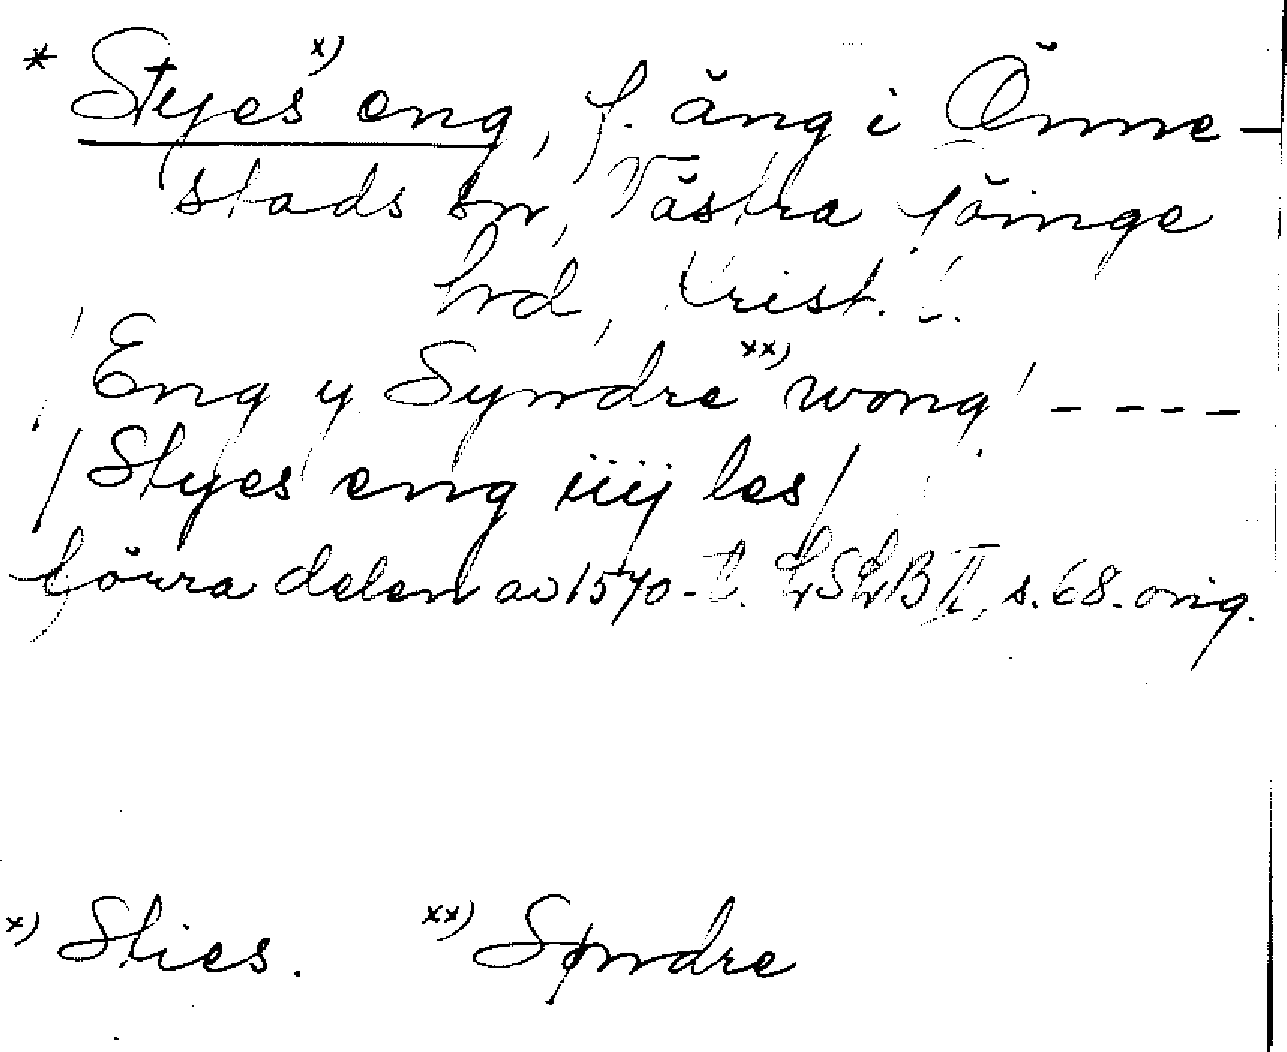 * Styes x) eng, f. äng i Önne-
stads sn, Västra Göinge
hrd, Krist. l.
Eng y Syndre xx) wong' - - - -
/Styes eng iiij les/
förra delen av 1570-t. LSLB II, s. 68. orig.
x) Sties. xx) Søndre